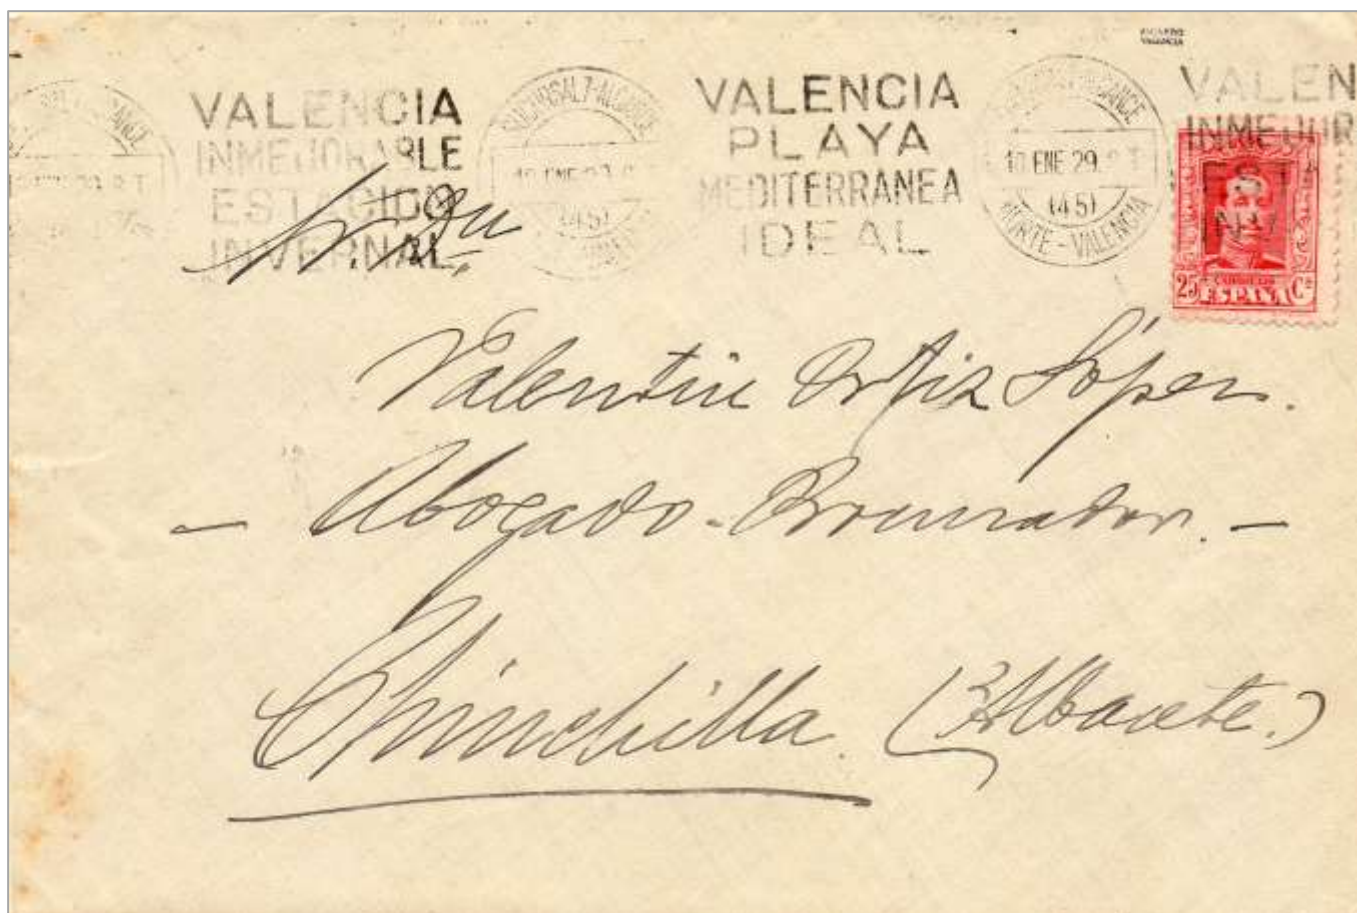 VALENCIA
INMEJORABLE
ESTACION
INVERNAL
SUCURSAL 7-ALCANCE
VALENCIA
PLAYA
MEDITERRANEA
IDEAL
10 ENE 29. 8 T
(45)
NORTE - VALENCIA
VALEN
INMEJOR
ESTA
INV
CORREOS
25 ESPAÑA Cs
Sr. Dn
Valentin Ortiz López.
- Abogado - Procurador. -
Chinchilla. (Albacete.)